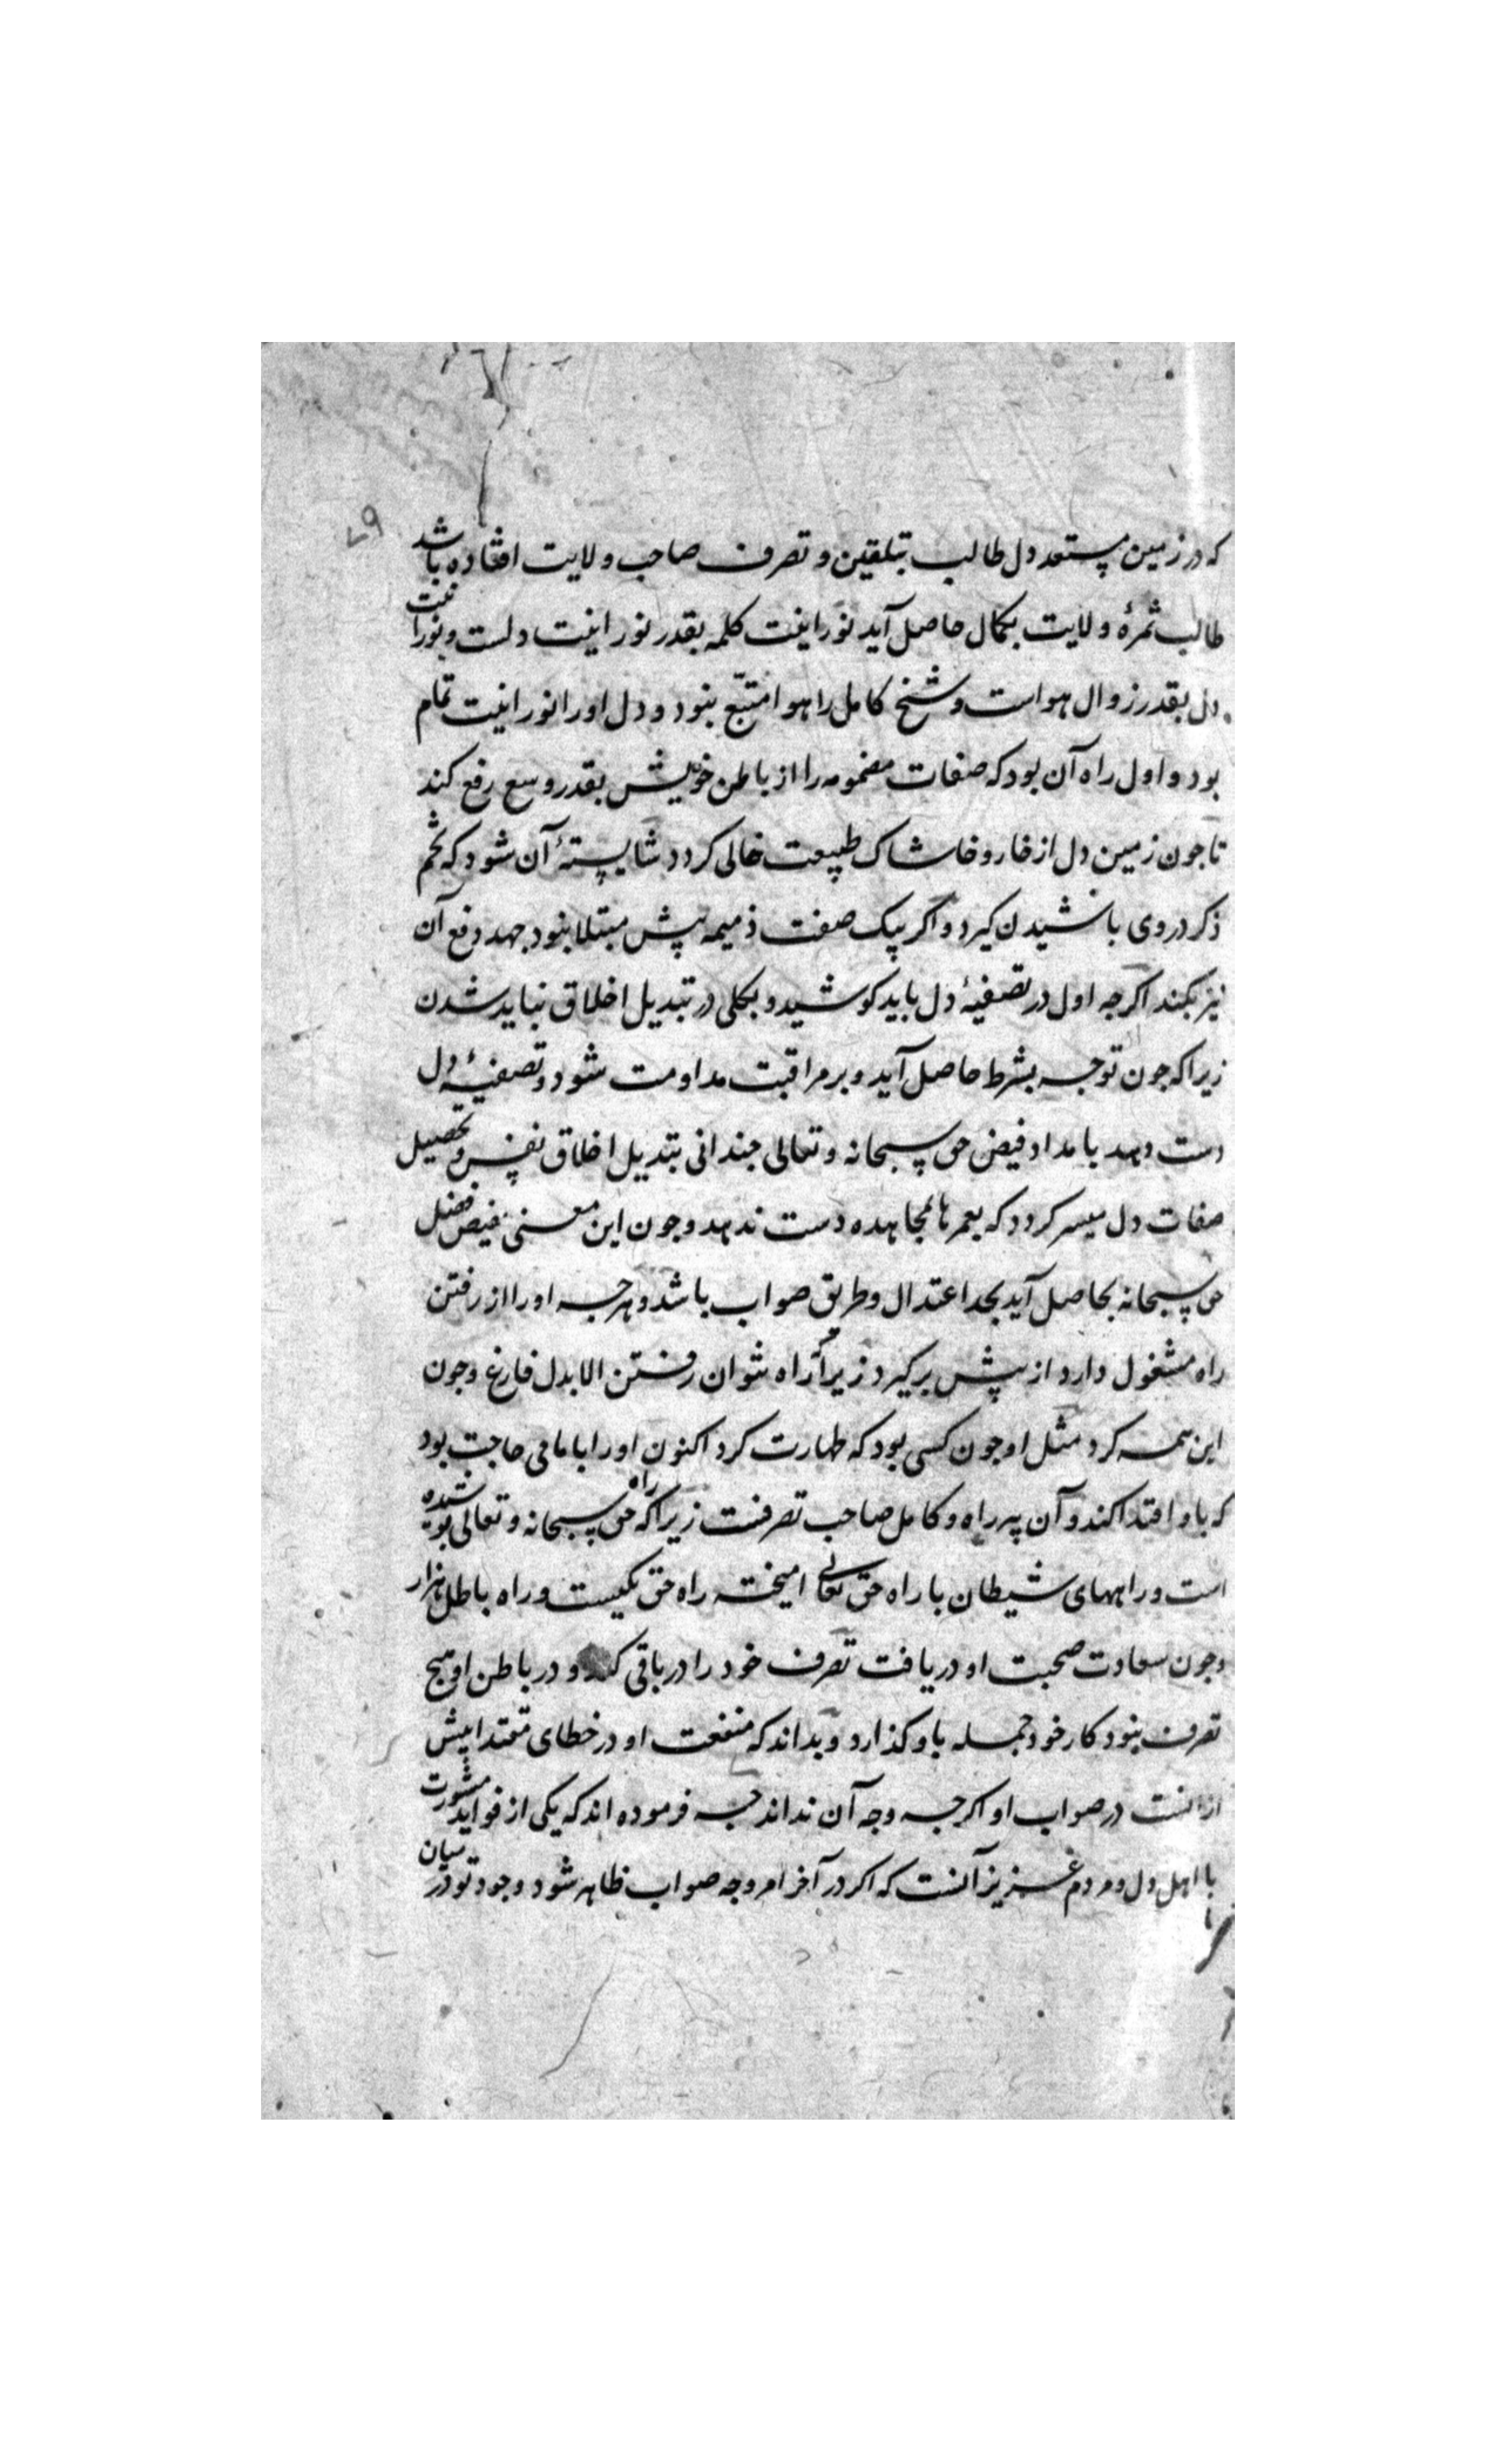 ۷۹
که در زمین مستعد دل طالب بتلقین و تصرف صاحب ولایت افتاده باشد
طالب ثمرهٔ ولایت بکمال حاصل آید نورانیت کلمه بقدر نورانیت دلست و نورانیت
دل بقدر زوال هواست و شیخ کامل را هوا متبّع نبود و دل او را نورانیت تمام
بود و اول راه آن بود که صفات مذمومه را از باطن خویش بقدر وسع رفع کند
تا جون زمین دل از خار و خاشاک طبیعت خالی کردد شایستهٔ آن شود که تخم
ذکر در وی باشیدن کیرد و اکر بیک صفت ذمیمه بیش مبتلا نبود جهد دفع آن
نیز بکند اکرجه اول در تصفیهٔ دل باید کوشید و بکلی در تبدیل اخلاق نباید شدن
زیرا که جون توجه بشرط حاصل آید و بر مراقبت مداومت شود و تصفیهٔ دل
دست دهد بامداد فیض حق سبحانه و تعالی جندانی تبدیل اخلاق نفس و تحصیل
صفات دل میسر کردد که بعمرها بمجاهده دست ندهد و جون این معنی بفیض فضل
حق سبحانه بحاصل آید بحد اعتدال و طریق صواب باشد و هرجه او را از رفتن
راه مشغول دارد از بیش برکیرد زیرا که راه نتوان رفتن الا بدل فارغ و جون
این همه کرد مثل او جون کسی بود که طهارت کرد اکنون او را بامامی حاجت بود
که باو اقتدا کند و آن پیر راه و کامل صاحب تصرفست زیرا که راه حق سبحانه و تعالی بوشیده
است و راههای شیطان با راه حق تعالی امیخته راه حق یکیست و راه باطل هزار
و جون سعادت صحبت او دریافت تصرف خود را در باقی کند و در باطن او هیج
تصرف نبود کار خود جمله باو کذارد و بداند که منفعت او در خطای مقتدا بیش
از انست در صواب او اکرجه وجه آن نداند جه فرموده اند که یکی از فواید مشورت
با اهل دل و مردم عزیز آنست که اکر در آخر امر وجه صواب ظاهر شود وجود تو در میان